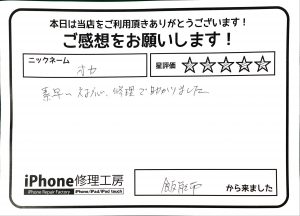 本日は当店をご利用頂きありがとうございます！
ご感想をお願いします！
ニックネーム
オカ
星評価 ☆☆☆☆☆
素早い対応、修理で助かりました
iPhone修理工房
iPhone Repair Factory iPhone/iPad/iPod touch
飯能市 から来ました